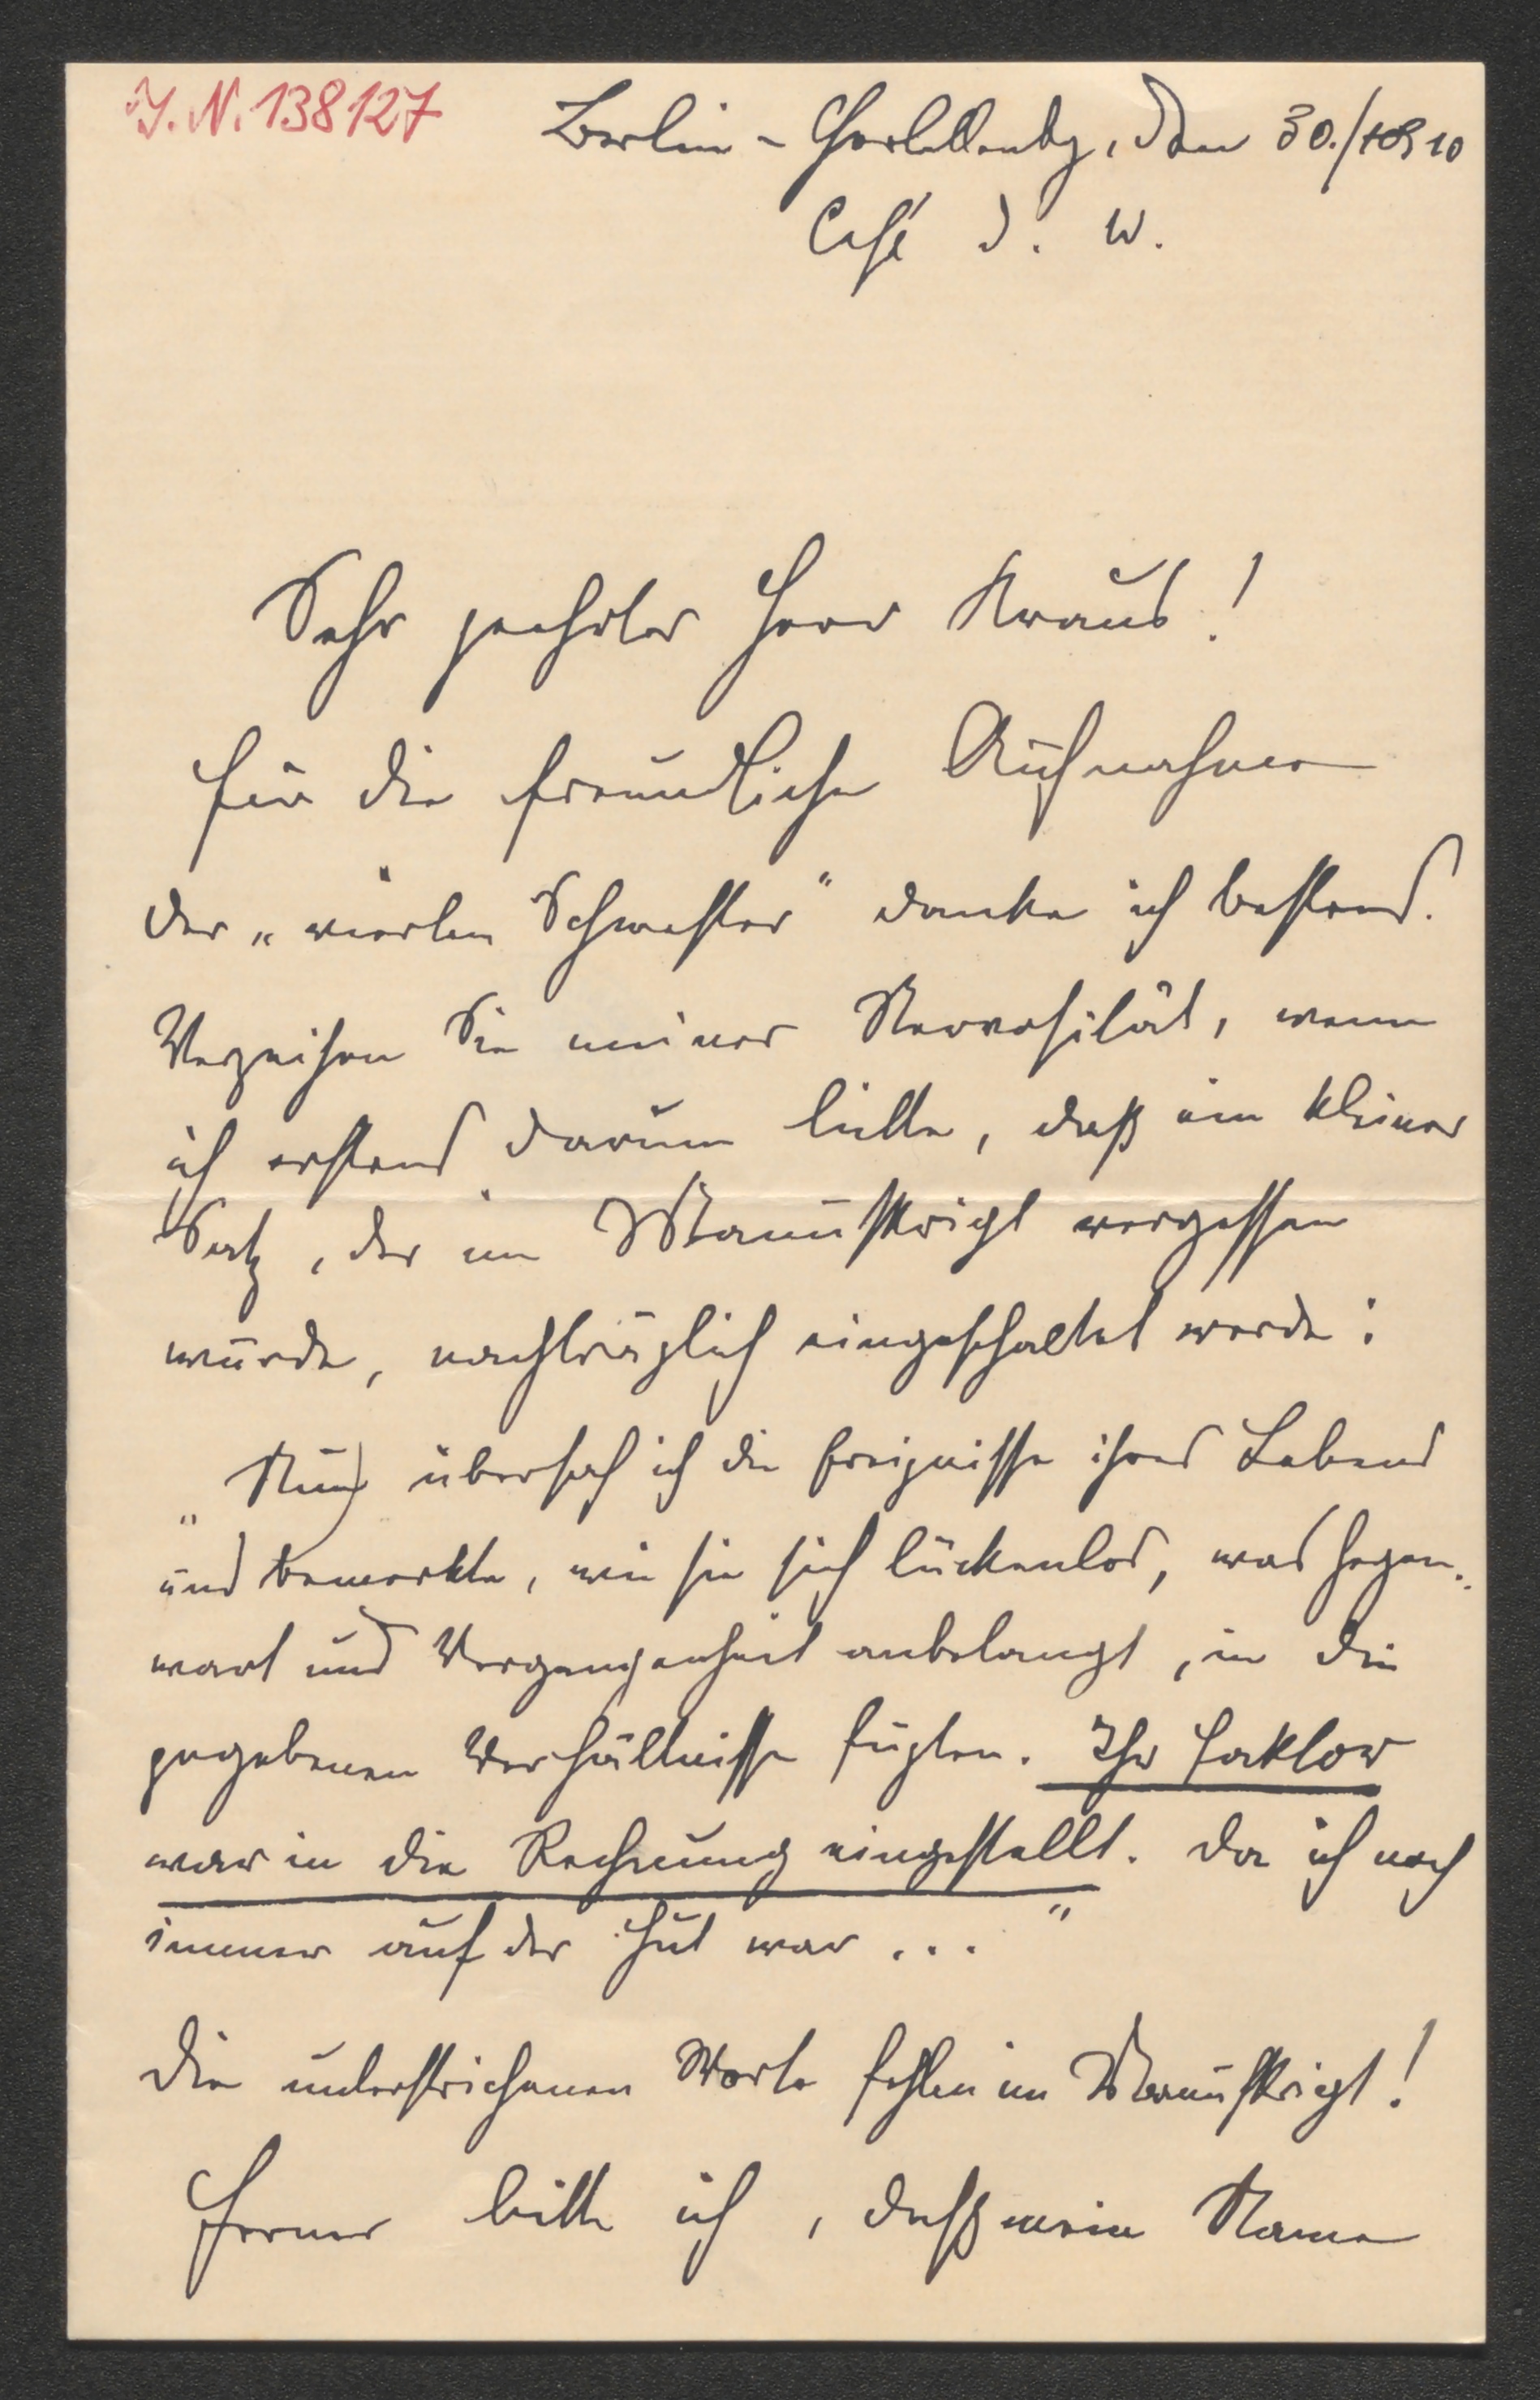 J. N. 138127
Berlin - Charlottenbg, den 30./10
Café d. W.
Sehr geehrter Herr Kraus!
für die freundliche Aufnahme
der „vierten Schwester" danke ich bestens.
Verzeihen Sie meiner Nervosität, wenn
ich erstens darum bitte, daß ein kleiner
Satz, der im Manuskript vergessen
wurde, nachträglich eingeschaltet werde:
„Nun übersah ich die Ereignisse ihres Lebens
und bemerkte, wie sie sich lückenlos, was Gegen-
wart und Vergangenheit anbelangt, in die
gegebenen Verhältnisse fügten. Ihr
war in die Rechnung eingestellt. Da ich noch
immer auf der Hut war ..."
Die unterstrichenen Worte fehlen im Manuskript!
Ferner bitte ich, daß mein Name